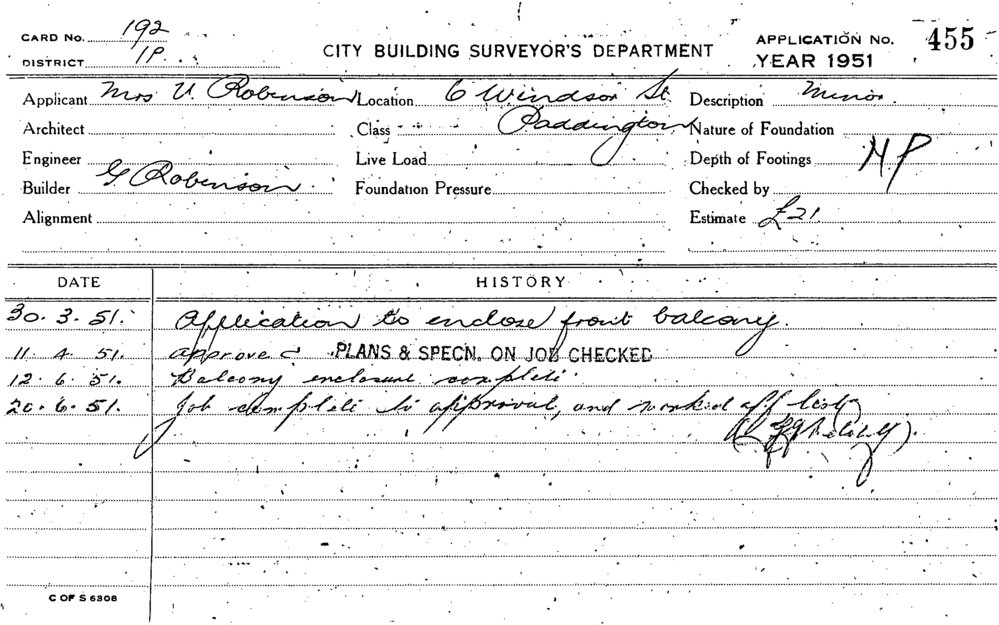 CARD No. 192
DISTRICT 1P.
CITY BUILDING SURVEYOR'S DEPARTMENT
APPLICATION No. 455
YEAR 1951
Applicant Mrs V. Robinson Location 6 Windsor St. Description Minor
Architect Class Paddington Nature of Foundation
Engineer Live Load Depth of Footings MP
Builder G Robinson. Foundation Pressure Checked by
Alignment Estimate £21.
DATE HISTORY
30. 3. 51. Application to enclose front balcony.
11. 4. 51. approved PLANS & SPECN. ON JOB CHECKED
12. 6. 51. Balcony enclosure complete.
20. 6. 51. Job complete to approval, and marked off list
C OF S 6308